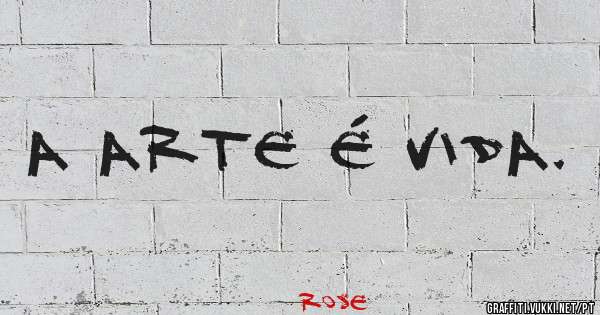 A ARTE É VIDA.
ROSE
GRAFFITI.VUKKI.NET/PT